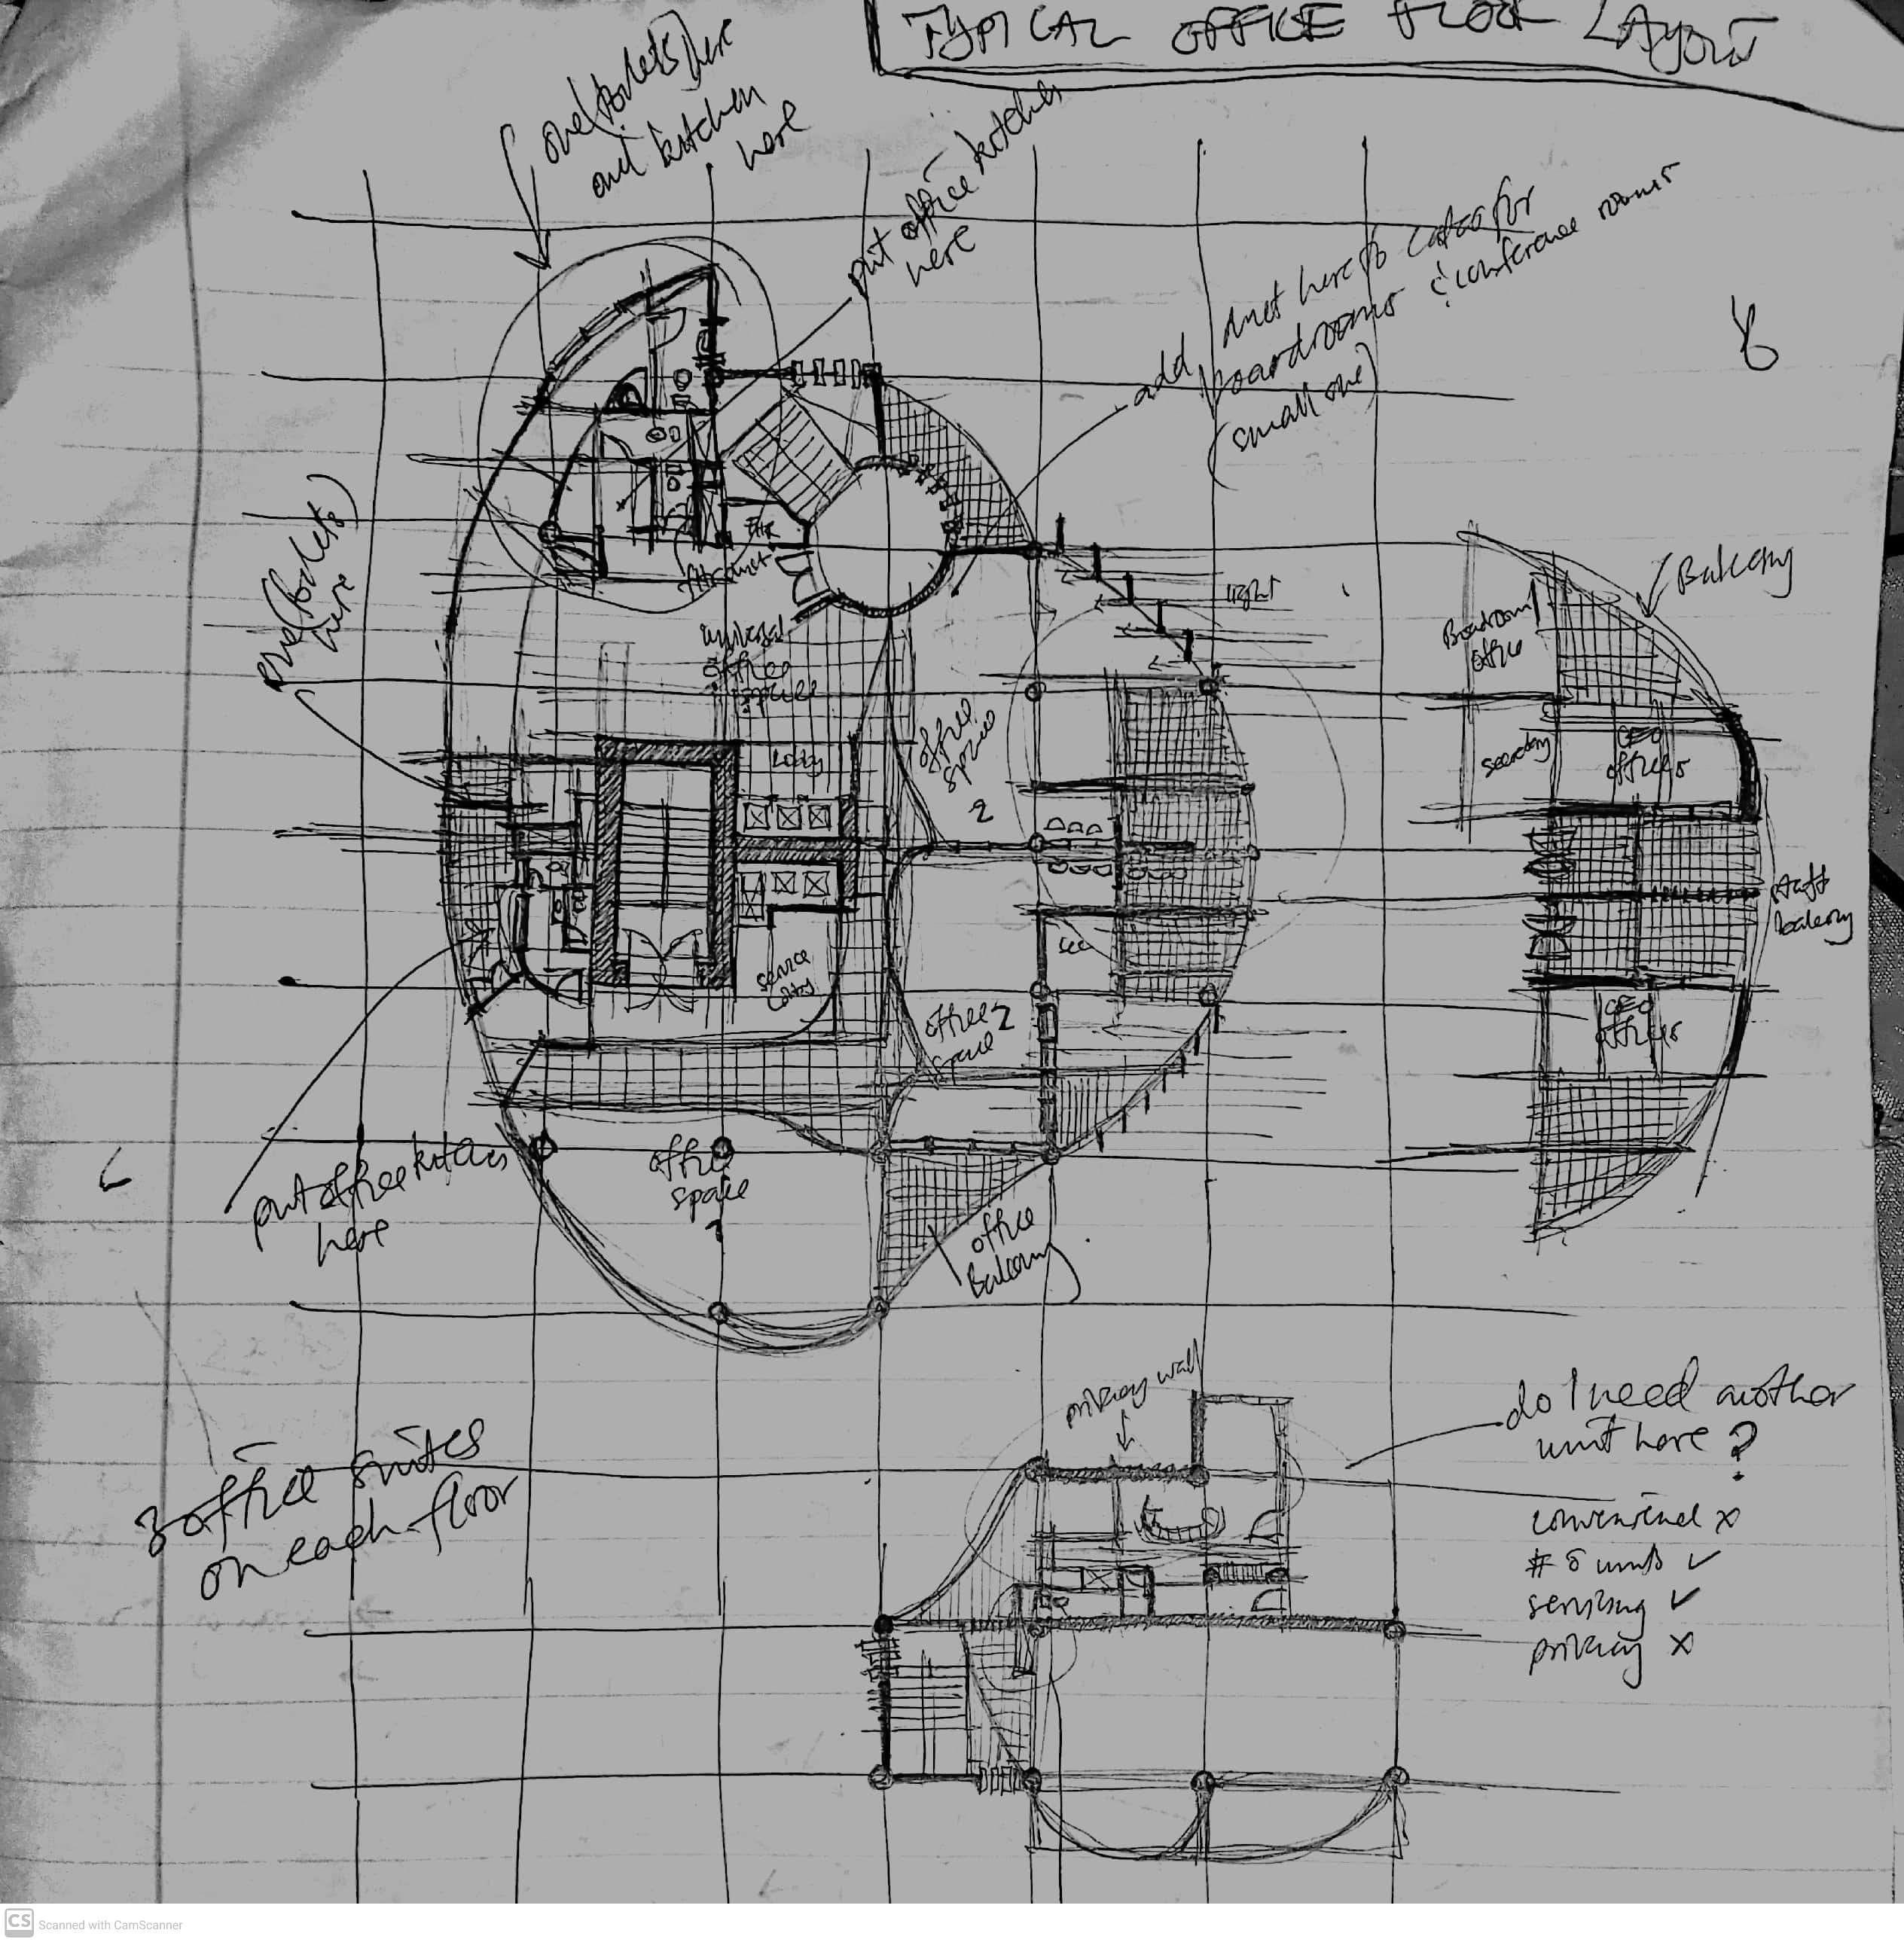 TYPICAL OFFICE FLOOR LAYOUT
one (toilets) here
and kitchen
here
put office kitchen
here
add duct here to cater for
boardrooms & conference rooms
(small one)
one (toilets)
here
AHR
duct
office
space
light
Balcony
Boardroom
office
office
space
2
Lobby
secretary
CEO
offices
staff
balcony
sec
service
lobby
office 2
space
CEO
offices
put office kitchen
here
office
space
1
office
Balcony
privacy wall
do I need another
unit here ?
3 office suites
on each floor
convenience x
# of units ✓
servicing ✓
privacy x
CS Scanned with CamScanner